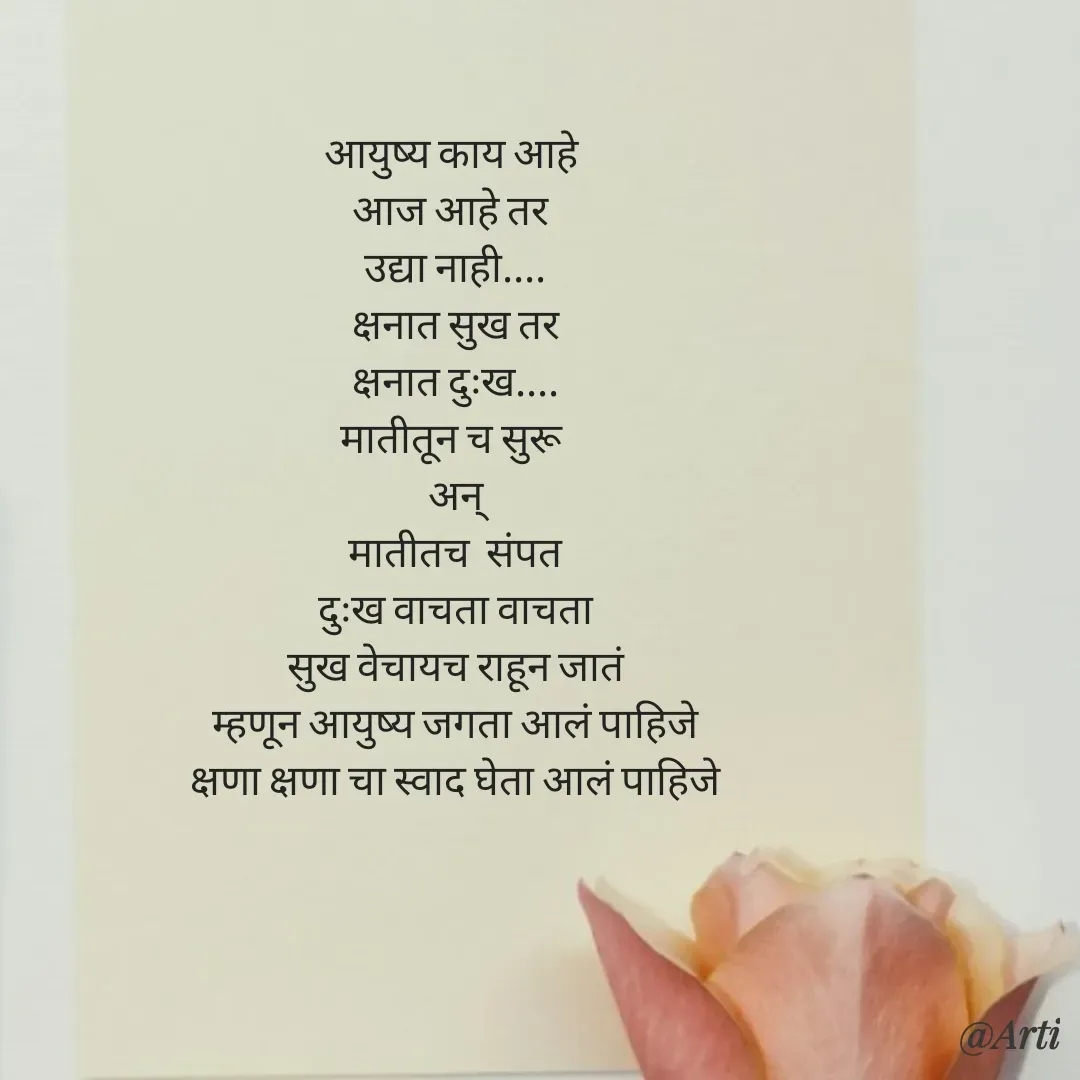 आयुष्य काय आहे
आज आहे तर
उद्या नाही....
क्षनात सुख तर
क्षनात दुःख....
मातीतून च सुरू
अन्
मातीतच संपत
दुःख वाचता वाचता
सुख वेचायच राहून जातं
म्हणून आयुष्य जगता आलं पाहिजे
क्षणा क्षणा चा स्वाद घेता आलं पाहिजे
@Arti